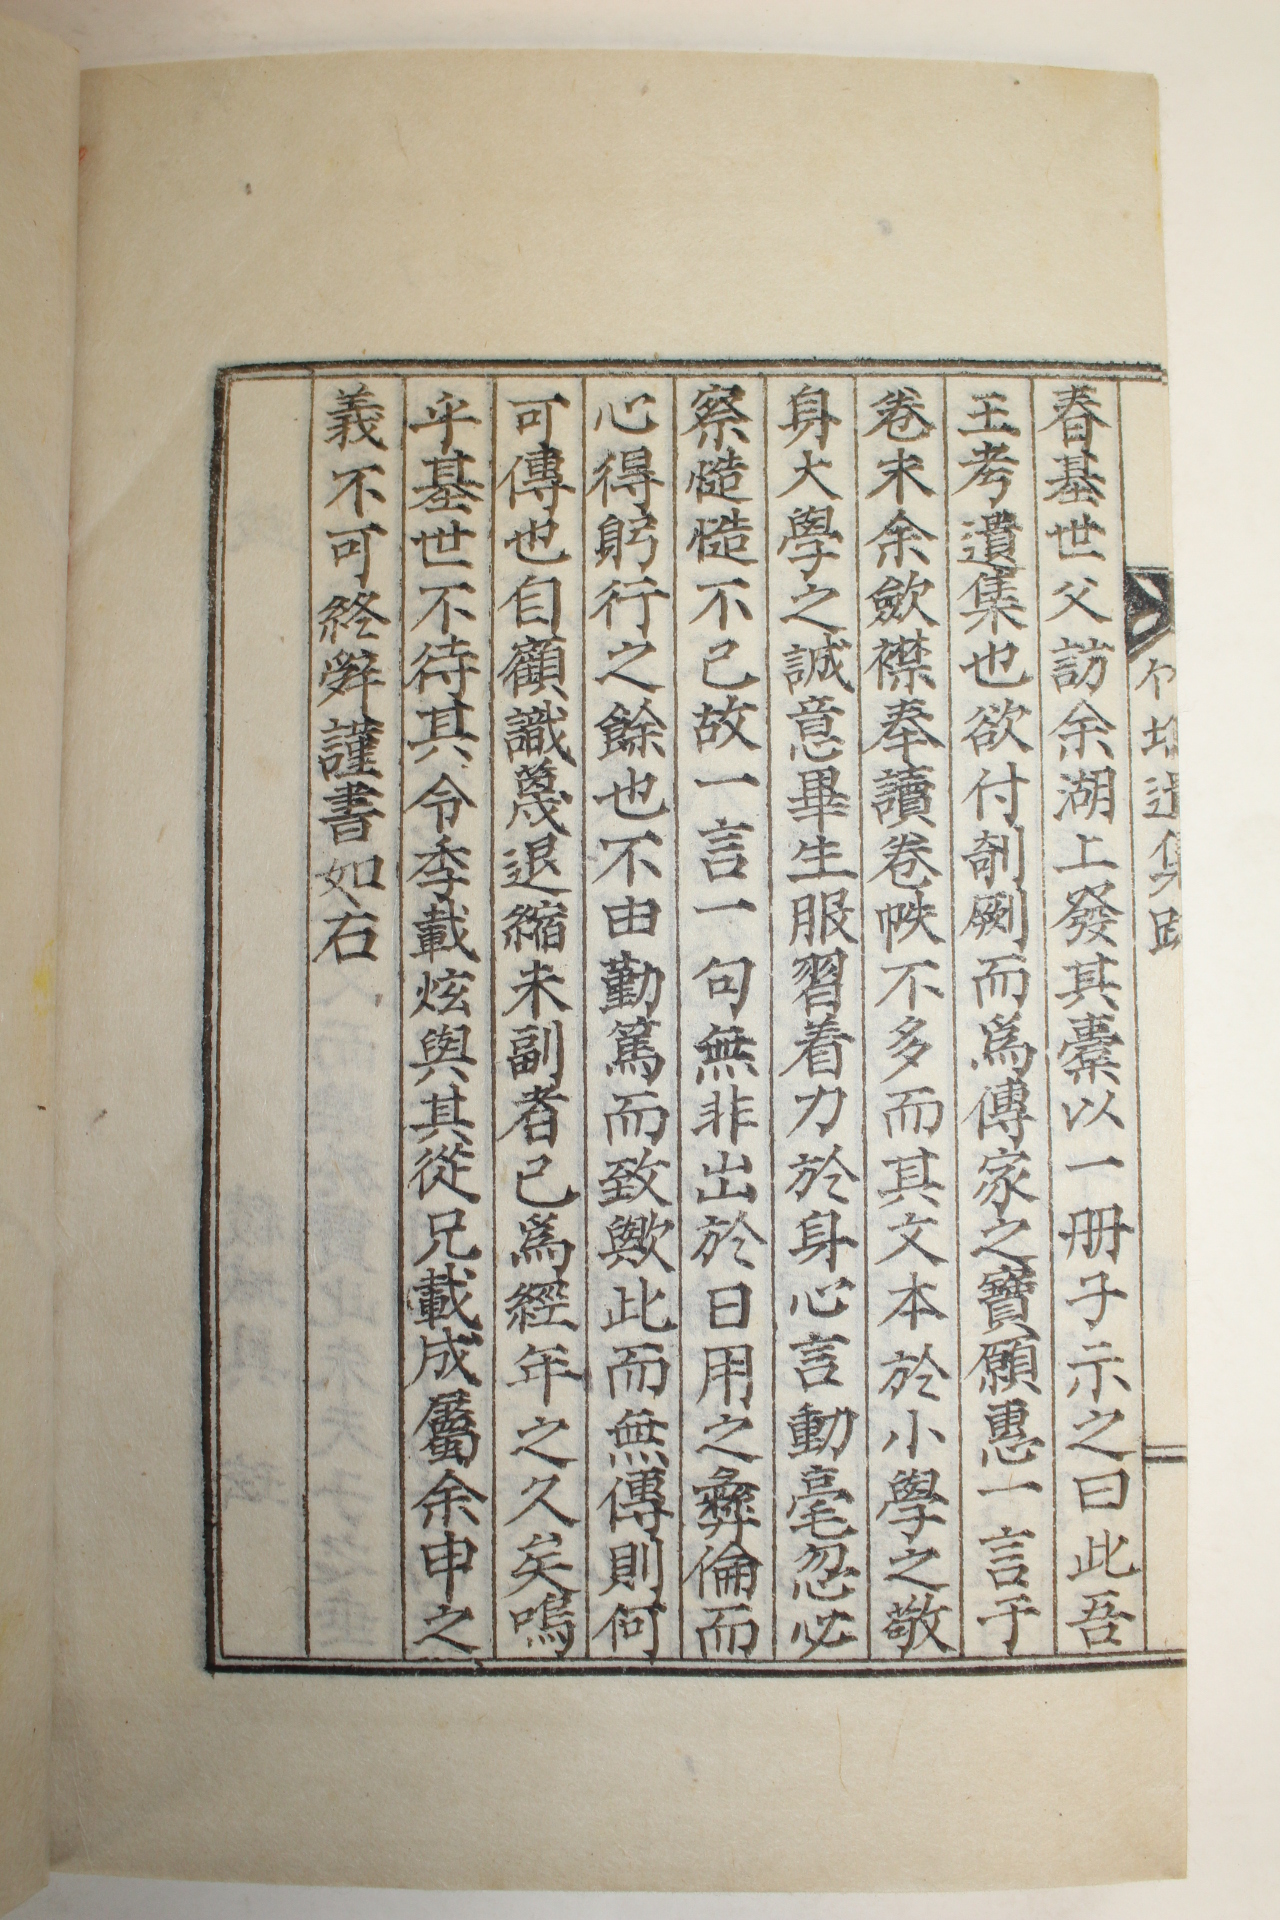 春基世父訪余湖上發其橐以一冊子示之曰此吾
王考遺集也欲付剞劂而爲傳家之寶願惠一言于
卷末余斂襟奉讀卷帙不多而其文本於小學之敬
身大學之誠意畢生服習着力於身心言動毫忽必
察慥慥不已故一言一句無非出於日用之彝倫而
心得躬行之餘也不由勤篤而致歟此而無傳則何
可傳也自顧識蔑退縮未副者已爲經年之久矣嗚
乎基世不待其令季載炫與其從兄載成屬余申之
義不可終辤謹書如右
遺集 跋